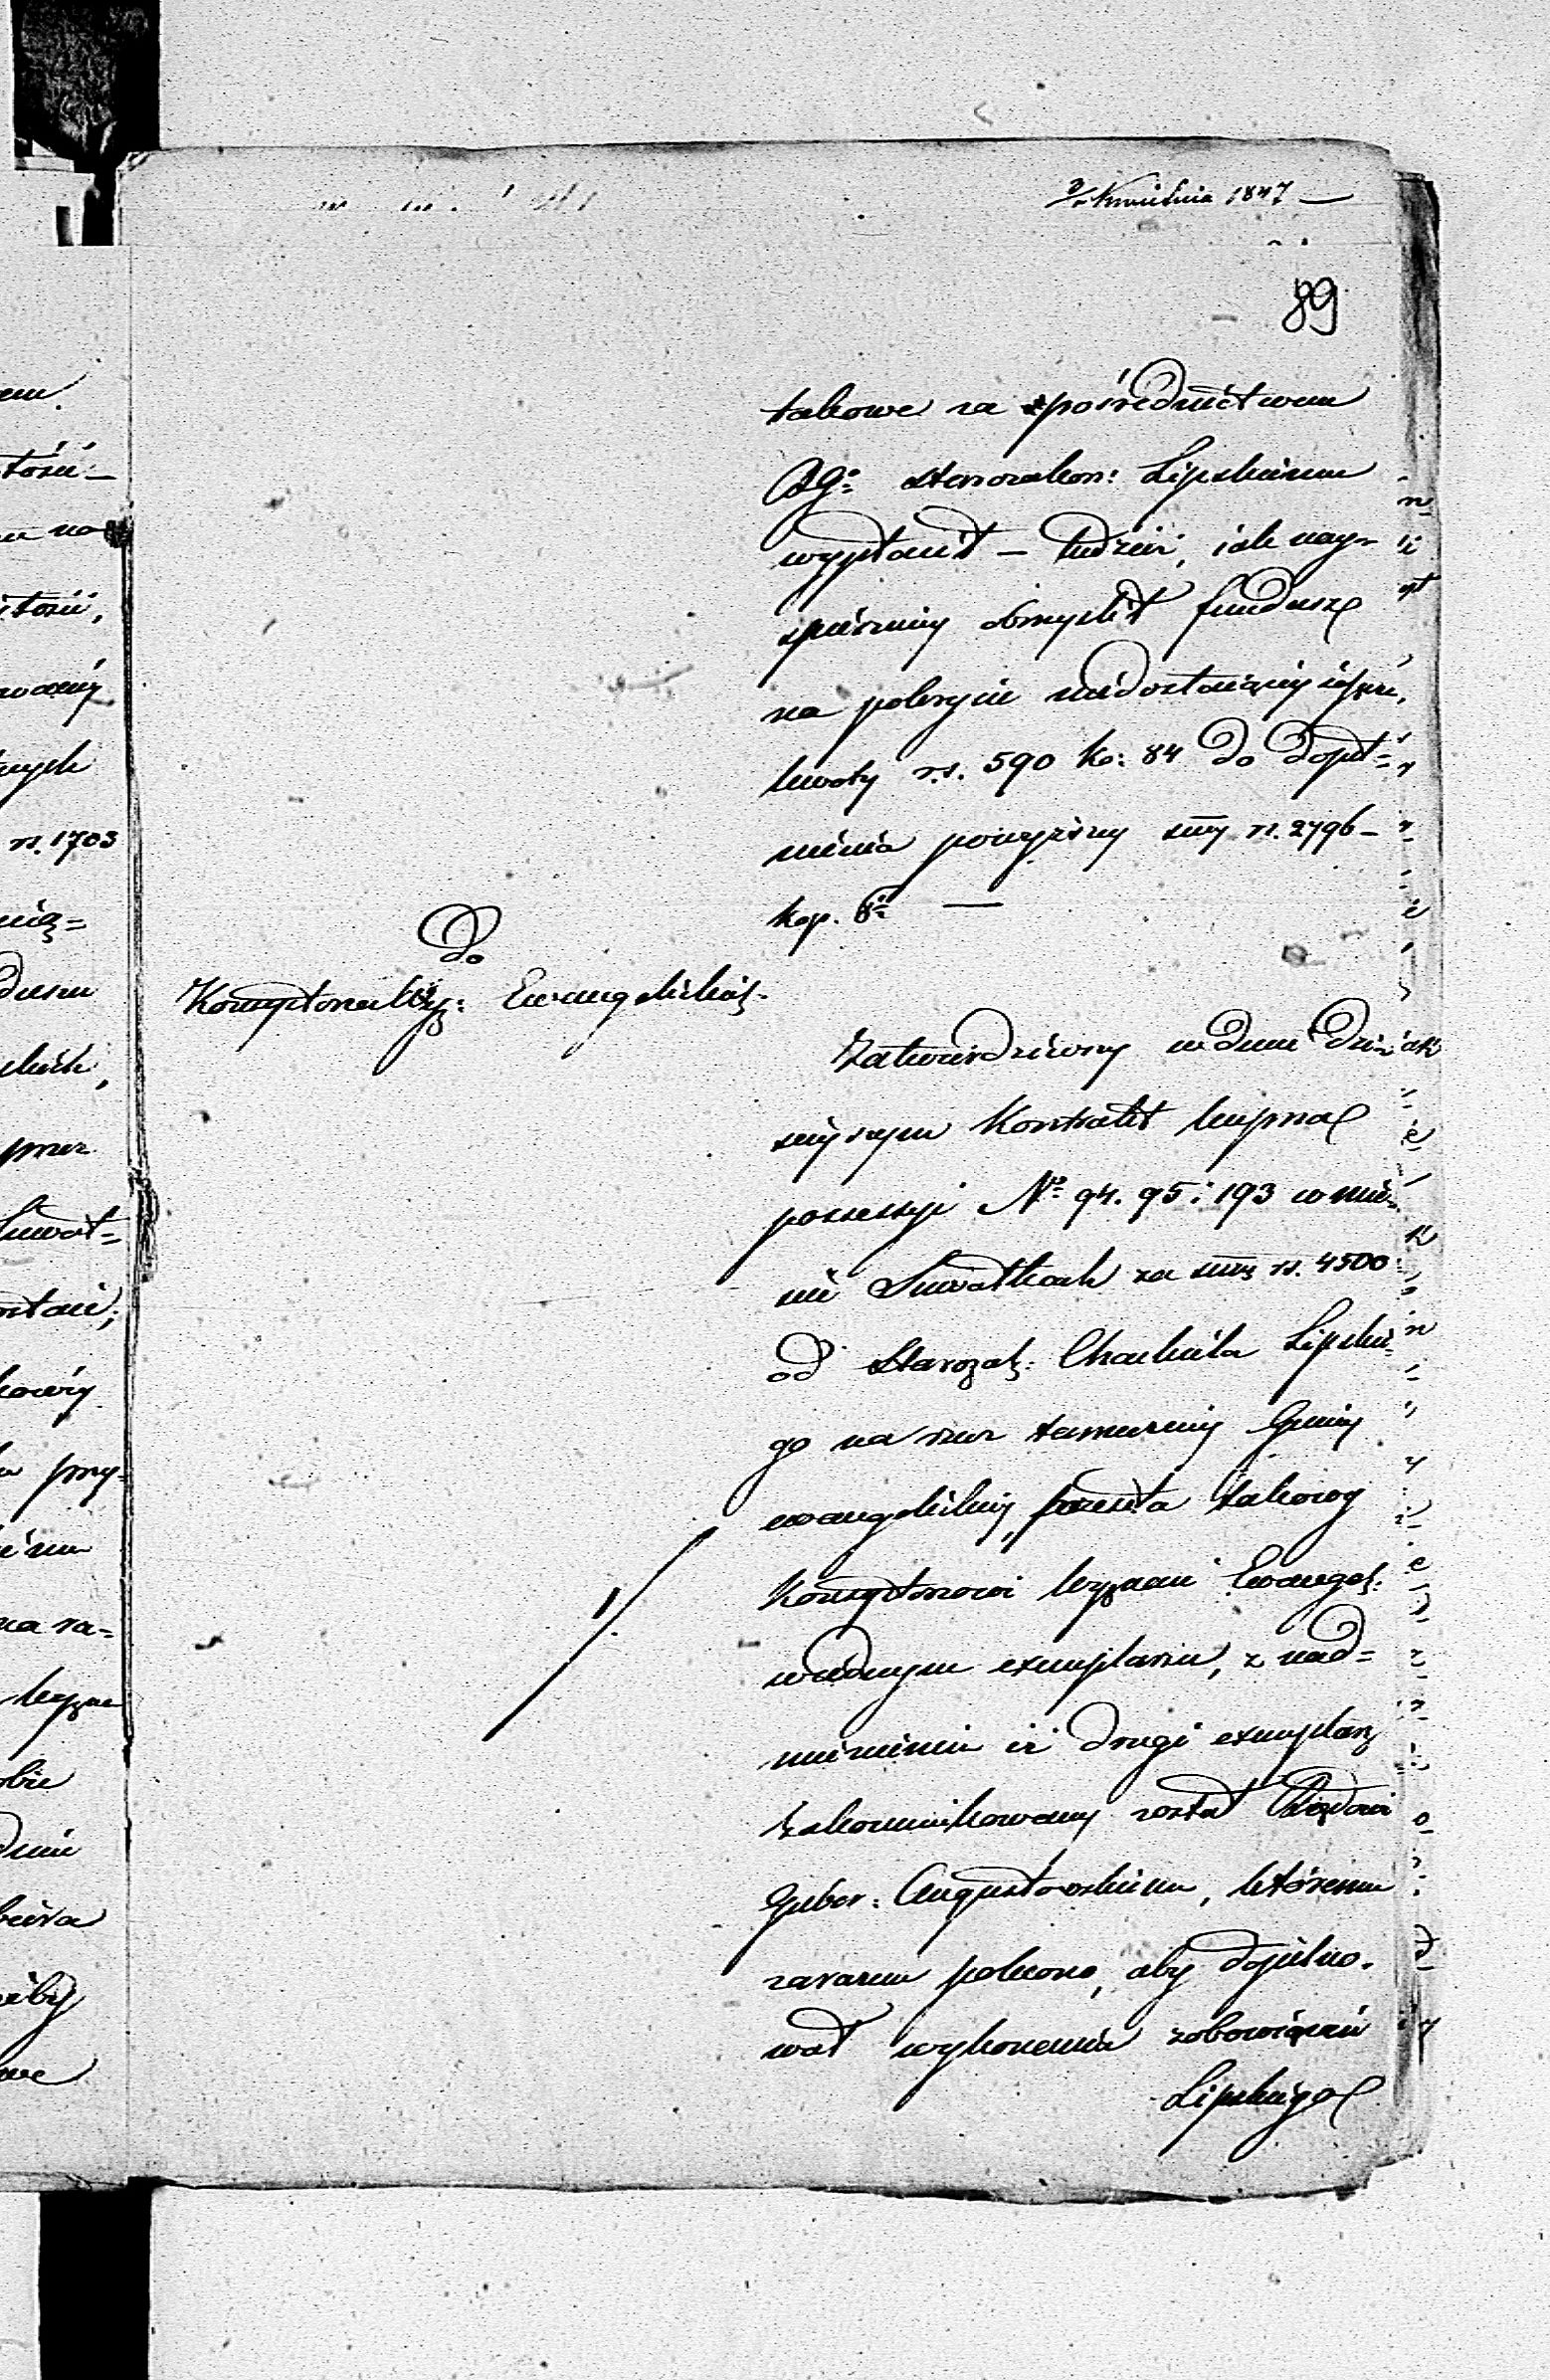 Kwietnia 1847 —
89
takowe za pośrednictwem
starozakon: Lipskiemu
wypłacił — tudzież, jak nay-
śpieszniey obmyślił fundusz
na pokrycie niedostaiącey ieszcze,
kwoty r.s. 590 ko: 84 do dopeł=
nienia powyższey sumy rs. 2796 —
kop. 8
Do
Konsystorza Wyz: Ewangelickiego.
Zatwierdzony w dniu dzi-
sieyszym Kontrakt kupna
possessyi Nº 94. 95 i 193 w mie-
ście Suwałkach za sumę rs. 4500
od Starozak: Chackiela Lipskie-
go na rzecz tameczney Gminy
ewangelickiey, przesyła takowy
Konsystorzowi Wyznań Ewangel:
w iednym exemplarzu, z nad=
mienieniem iż drugi exemplarz
zakomunikowany został Rządowi
Guber: Augustowskiemu, któremu
zarazem polecono, aby dopilno-
wał wykonania zobowiązań
Lipskiego
em
ną=
n. 1703
przez
Suwał=
przy=
na za=
wyzna